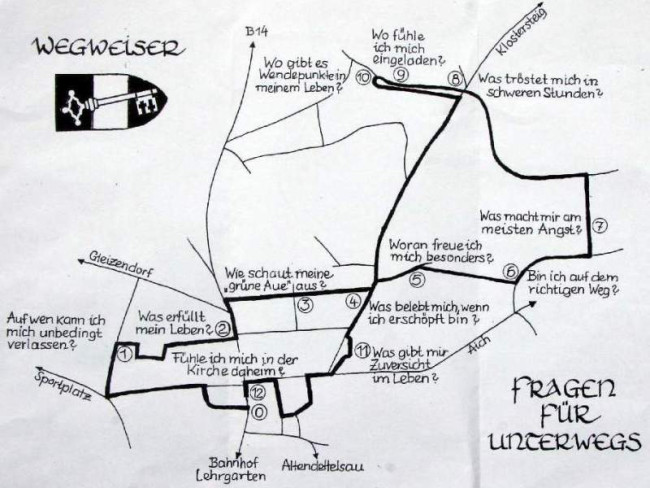 WEGWEISER
B14
Klostersteig
Wo fühle
ich mich
eingeladen?
Wo gibt es
Wendepunkte in
meinem Leben?
10
9
8
Was tröstet mich in
schweren Stunden?
Was macht mir am
meisten Angst?
7
Woran freue ich
mich besonders?
5
6
Bin ich auf dem
richtigen Weg?
Gleizendorf
Wie schaut meine
„grüne Aue" aus?
3
4
Was belebt mich, wenn
ich erschöpft bin?
Auf wen kann ich
mich unbedingt
verlassen?
Was erfüllt
mein Leben?
2
1
Fühle ich mich in der
Kirche dgheim?
11
Was gibt mir
Zuversicht
im Leben?
Aich
Sportplatz
12
0
Bahnhof
Lehrgarten
Attendettelsau
FRAGEN
FÜR
UNTERWEGS